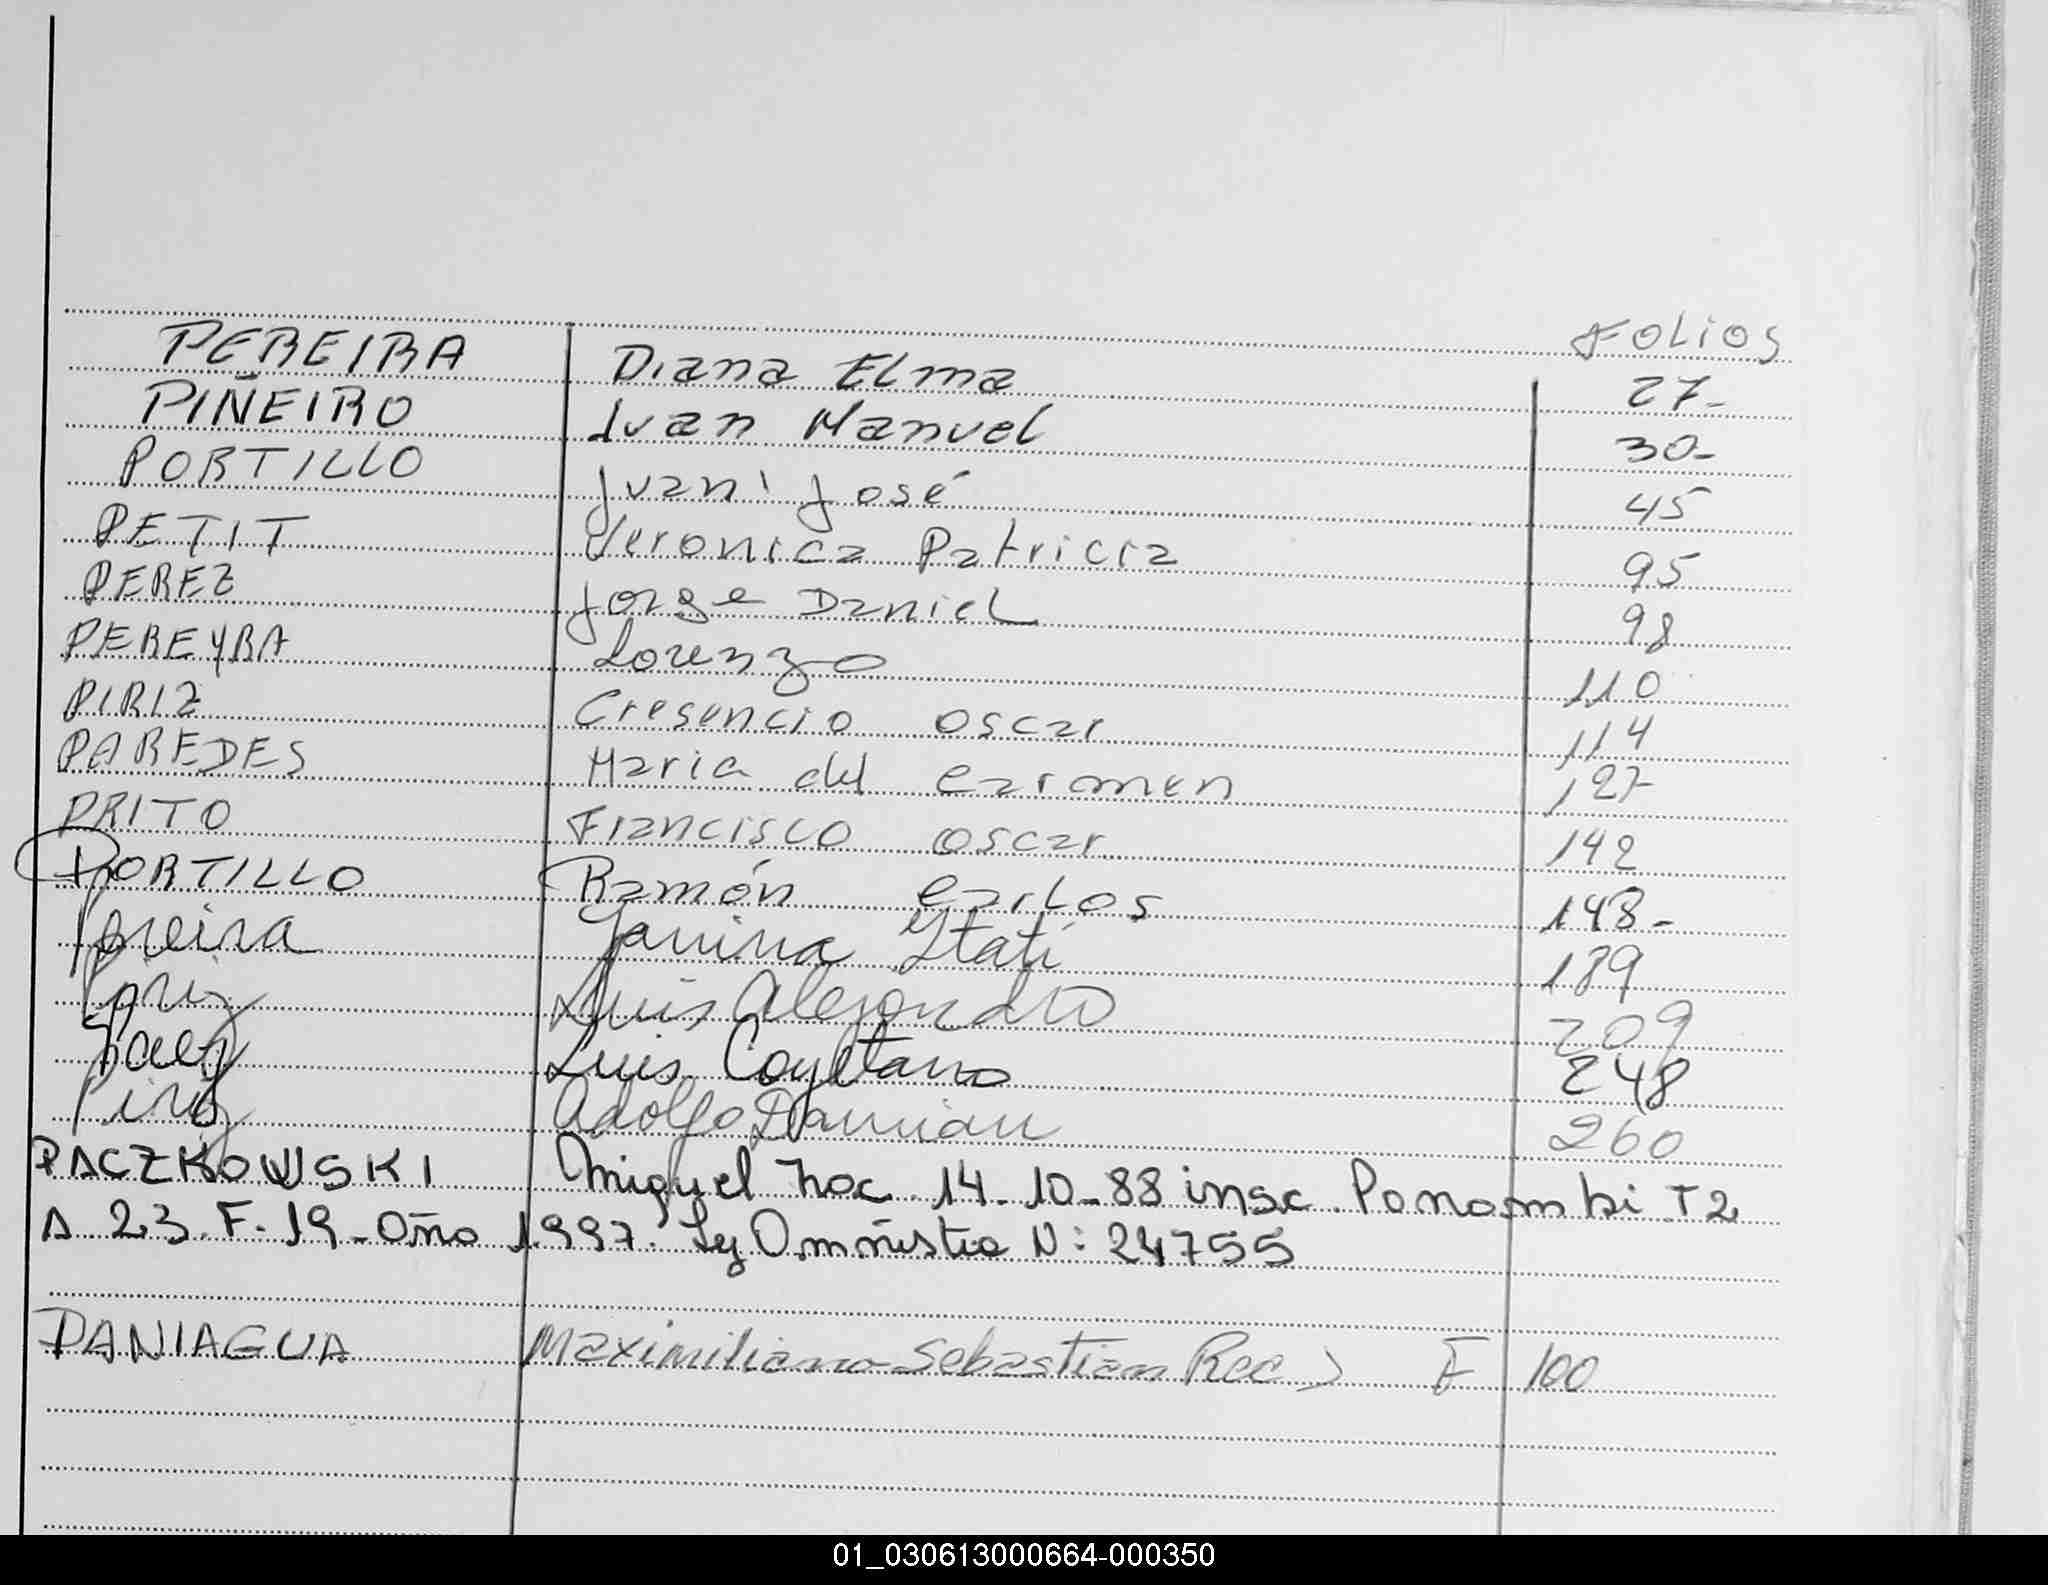 FOLIOS
PEREIRA Diana Elma 27-
PIÑEIRO Ivan Manuel 30-
PORTILLO Juan José 45
PETIT Veronica Patricia 95
PEREZ Jorge Daniel 98
PEREYRA Lorenzo 110
PIRIZ Cresencio oscar 114
PAREDES Maria del Carmen 127-
PRITO Francisco oscar 142
PORTILLO Ramón Carlos 148-
Pereira Yanina Itati 189
Piriz Luis Alejandro 209
Paez Luis Cayetano 248
Piriz Adolfo Damian 260
PACZKOWSKI Miguel Nac. 14-10-88 insc. Panambi T2
A. 23. F. 19- Año 1997. Ley Amnistia N: 24755
PANIAGUA Maximiliano Sebastian Rec F 100
01_030613000664-000350